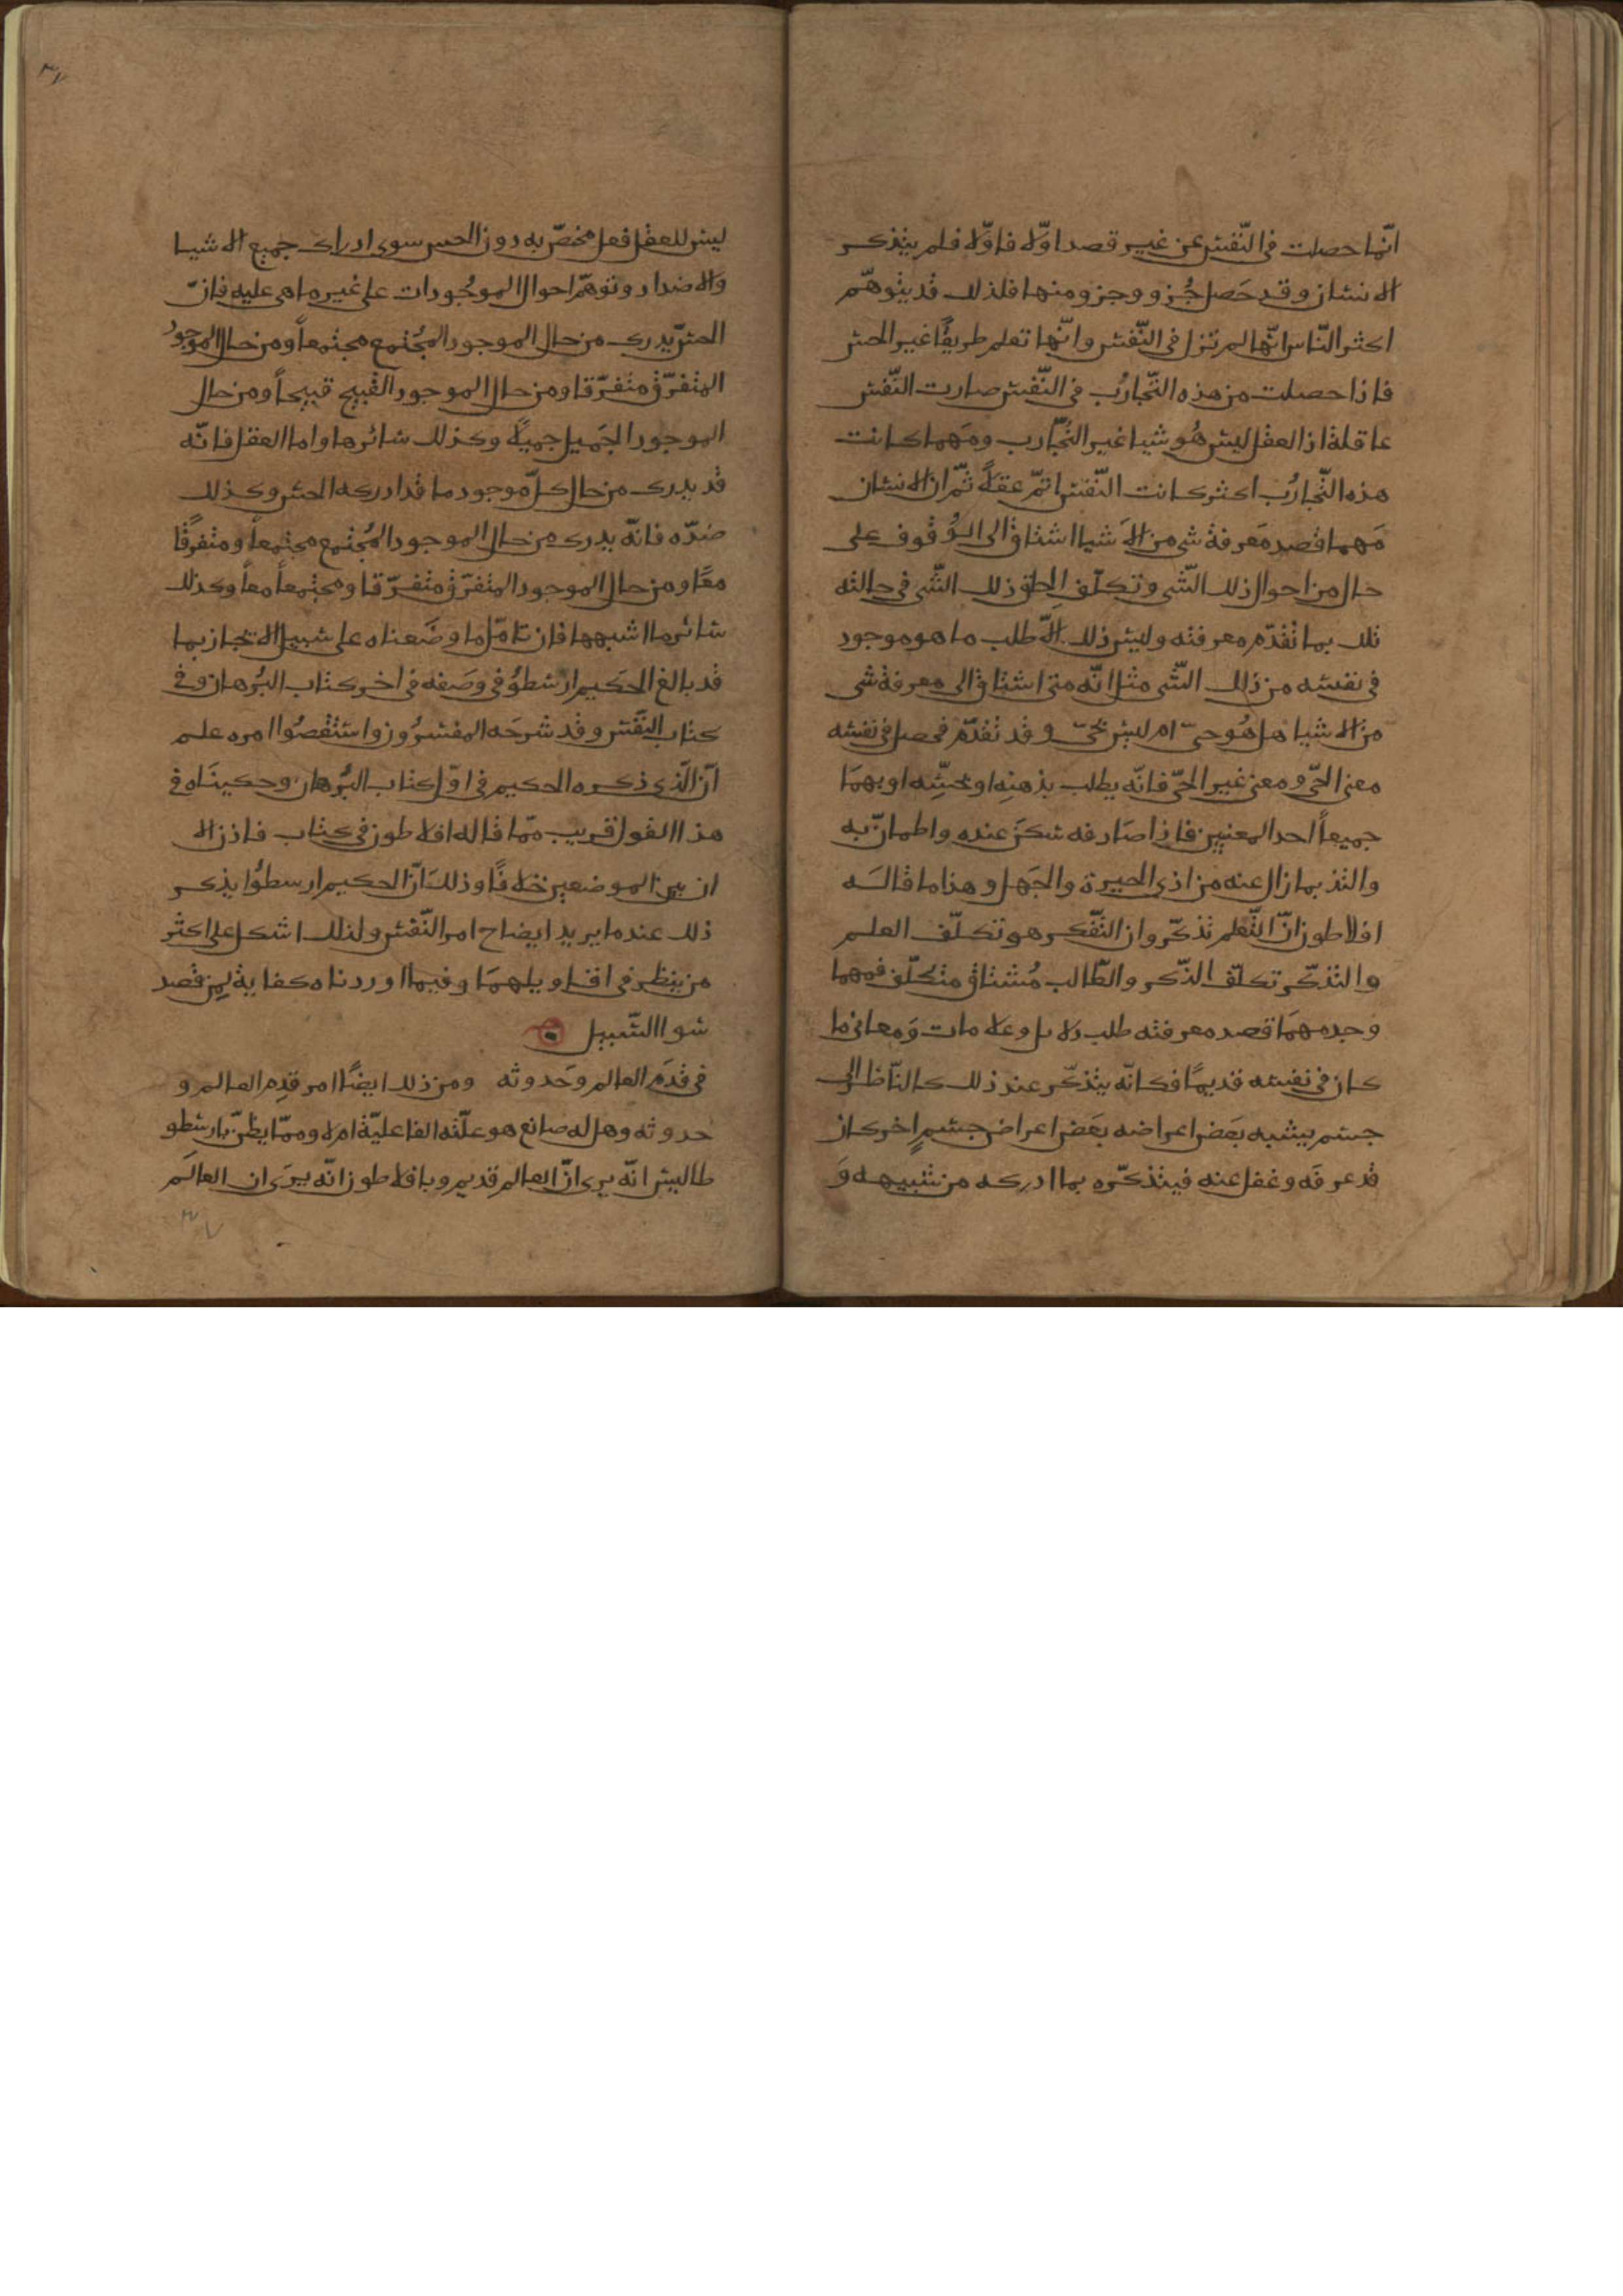 انّما حصلت فى النّفس عن غير قصد اوّلا فاوّلا فلم يتذكر
الانسان وقد حَصل جُزو وجزو منها فلذلك قد يتوهّم
اكثر النّاس انّها لم تزل فى النّفس وانّها تعلم طريقًا غير الحس
فاذا حصلت من هذه التّجارُب فى النّفس صارت النّفس
عاقلة اذ العقل ليس هُو شيا غير التّجارب ومَهما كانت
هذه التّجارُب اكثر كانت النّفس اتمّ عقلاً ثمّ ان الانسان
مَهما قصد مَعرفة شى من الاَشيا اشتاق الى الوُقوف على
حال من احوال ذلك الشّى وتكلّف اِلحاق ذلك الشّى فى حالته
تلك بما تقدّم معرفته وليس ذلك الاّ طلب ما هو موجود
فى نفسه من ذلك الشّى مثل انّه متى اشتاق الى معرفة شى
من الاشيا هل هُو حىّ ام ليس بحىّ وقد تقدّم فحصل فى نفسه
معنى الحىّ ومعنى غير الحىّ فانّه يطلب بذهنِه او بحسِّه او بهمَا
جميعاً احد المعنيين فاذا صَادفه سَكَنَ عنده واطمانّ به
والتذ بما زال عنه من اذى الحيرة والجَهل وهذا ما قالَه
افلاطون انّ التّعلم تذكّر وان التّفكر هو تكلّف العلم
والتذكّر تكلّف الذّكر والطّالب مُشتاق متكلّف فمهما
وجده مهمَا قصد معرفته طلب دلايل وعلامات وَمعانى ما
كان فى نفسه قديمًا فكانّه يتذكّر عند ذلك كالنّاظر الى
جسم يشبه بَعض اعراضه بعَض اعراض جسمٍ اخر كان
قد عرفَه وغفل عنه فيتذكّره بما ادركه من شبيهه وَ
ليس للعقل فعل مخصّ به دون الحس سوى ادراك جميع الاشيا
والاضداد وتوهّم احوال الموجُودات على غير ما هى عليه فانّ
الحسّ يدرك من حال الموجود المجُتمع مجتمعاً ومن حال الموجود
المتفرّق متفرّقا ومن حال الموجود القبيح قبيحاً ومن حال
الموجود الجَميل جميلاً وكذلك سائرها واما العقل فانّه
قد يدرك من حال كلّ موجود ما قد ادركه الحس وكذلك
ضدّه فانّه يدرك من حال الموجود المُجتمع مجتمعاً ومتفرقًا
معًا ومن حال الموجود المتفرّق متفرّقا ومجتمعاً معاً وكذلك
سائر ما اشبهها فان تامّل ما وصَفناه على سبيل الايجاز بما
قد بالغ الحَكيم ارسطُو فى وصَفه فى اخر كتاب البُرهان وفى
كتاب النّفس وقد شرحَه المفسّرُون واستقصُوا امره علم
انّ الّذى ذكره الحكيم فى اوّل كتاب البُرهان وحكينَاه فى
هذا القول قريب ممّا قاله افلاطون فى كتاب فاذن الا
ان بين الموضعين خلافًا وذلك انّ الحكيم ارسطوُا يذكر
ذلك عندما يريد ايضاح امر النّفس ولذلك اشكل على اكثر
من ينظر فى اقاويلهمَا وفيما اوردناه كفاية لِمن قصد
سوا السّبيل
فى قدَم العالم وحَدوثه ومن ذلك ايضًا امر قدِم العالم و
حدوثه وهل له صانع هو علّته الفاعليّة ام لا وممّا يظنّ بارسطو
طاليس انّه يرى انّ العالم قديم وبافلاطون انّه يرَى ان العالَم
٣٧